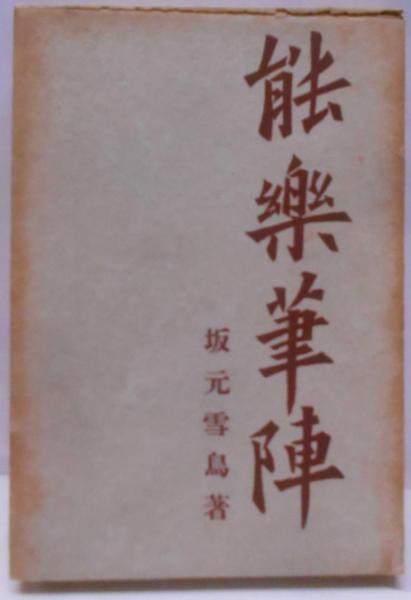 能樂筆陣
坂元雪鳥著